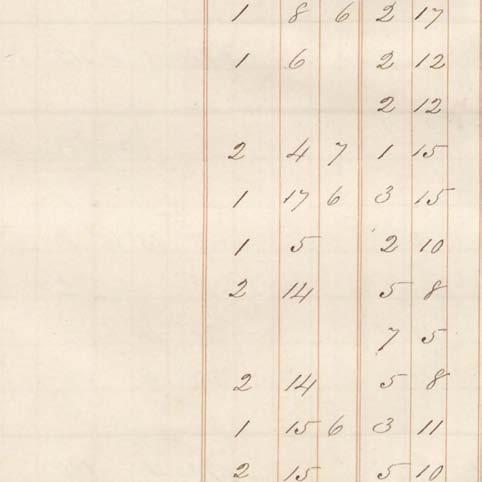 1 8 6 2 17
1 6 2 12
2 12
2 4 7 1 15
1 17 6 3 15
1 5 2 10
2 14 5 8
7 5
2 14 5 8
1 15 6 3 11
2 15 5 10